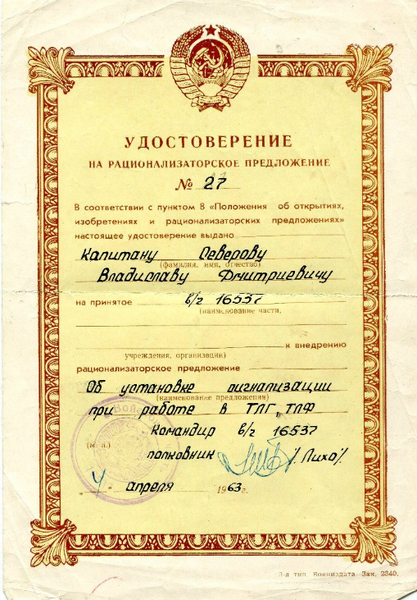 УДОСТОВЕРЕНИЕ
НА РАЦИОНАЛИЗАТОРСКОЕ ПРЕДЛОЖЕНИЕ
№ 27
В соответствии с пунктом 8 «Положения об открытиях,
изобретениях и рационализаторских предложениях»
настоящее удостоверение выдано
Капитану Северову
(фамилия, имя, отчество)
Владиславу Дмитриевичу
на принятое в/г 16537
(наименование части,
к внедрению
учреждения, организации)
рационализаторское предложение
Об установке сигнализации
(наименование предложения)
при работе в ТЛГ, ТЛФ
Командир в/г 16537
(м. п.)
полковник /Лихо/
4 апреля 1963 г.
3-я тип. Воениздата. Зак. 2240.